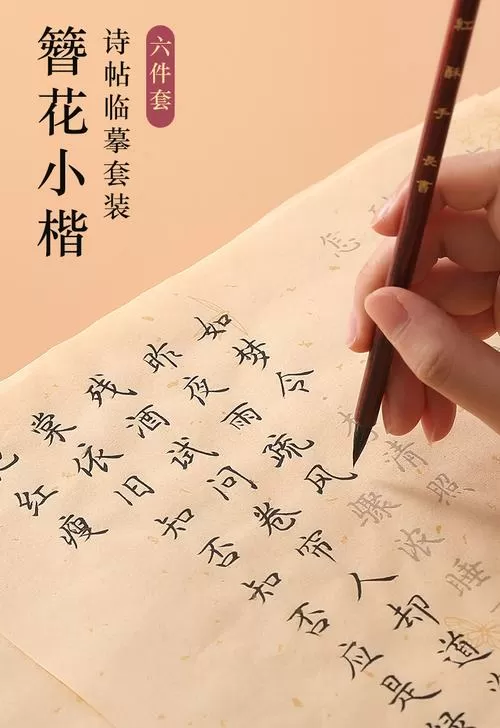 簪花小楷
诗帖临摹套装
六件套
紅酥手
長書
怎
如梦令 李清照
昨夜雨疏风骤浓睡
残酒试问卷帘人却道
棠依旧知否知否应是
红瘦